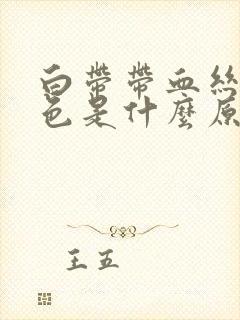 白帶帶血絲
色是什麼原
王五